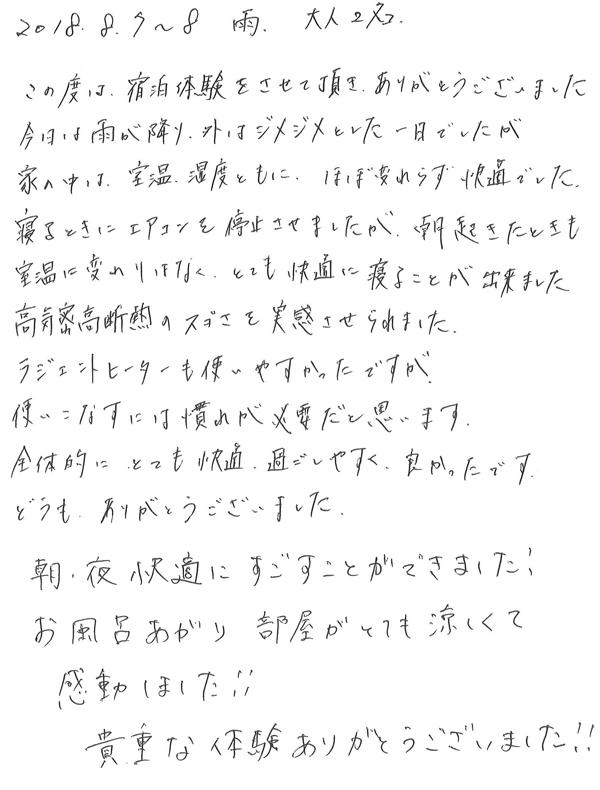 2018.8.7～8 雨. 大人2名.
この度は、宿泊体験をさせて頂き、ありがとうございました
今日は雨が降り、外はジメジメとした一日でしたが
家の中は、室温、湿度ともに、ほぼ変わらず快適でした。
寝るときにエアコンを停止させましたが、朝起きたときも
室温に変わりはなく、とても快適に寝ることが出来ました
高気密高断熱のスゴさを実感させられました。
ラジエントヒーターも使いやすかったですが、
使いこなすには慣れが必要だと思います。
全体的に、とても快適、過ごしやすく、良かったです。
どうも、ありがとうございました。
朝・夜快適にすごすことができました!
お風呂あがり 部屋がとても涼しくて
感動しました!!
貴重な体験ありがとうございました!!